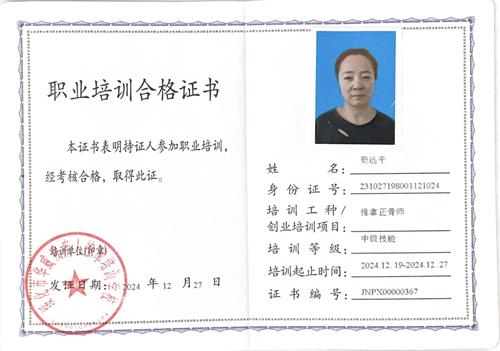 职业培训合格证书
本证书表明持证人参加职业培训，
经考核合格，取得此证。
培训单位(印章)
发证日期： 2024 年 12 月 27 日
姓 名： 苟远平
身 份 证 号： 231027198001121024
培 训 工 种 /
创业培训项目： 推拿正骨师
培 训 等 级： 中级技能
培训起止时间： 2024.12.19-2024.12.27
证 书 编 号： JNPX00000367